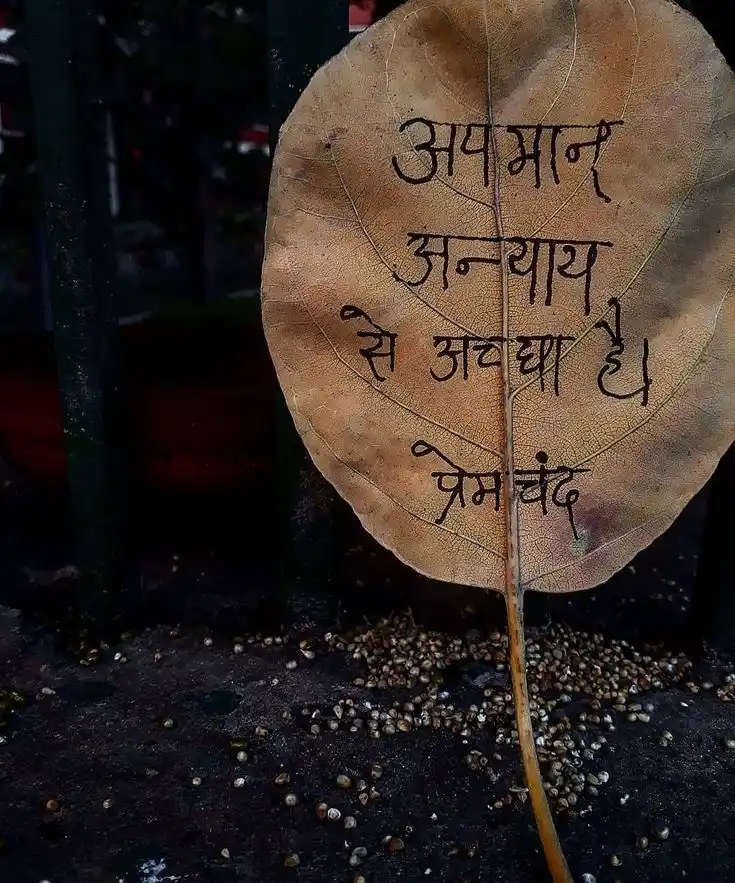 अपमान
अन्याय
से अच्छा है।
प्रेमचंद